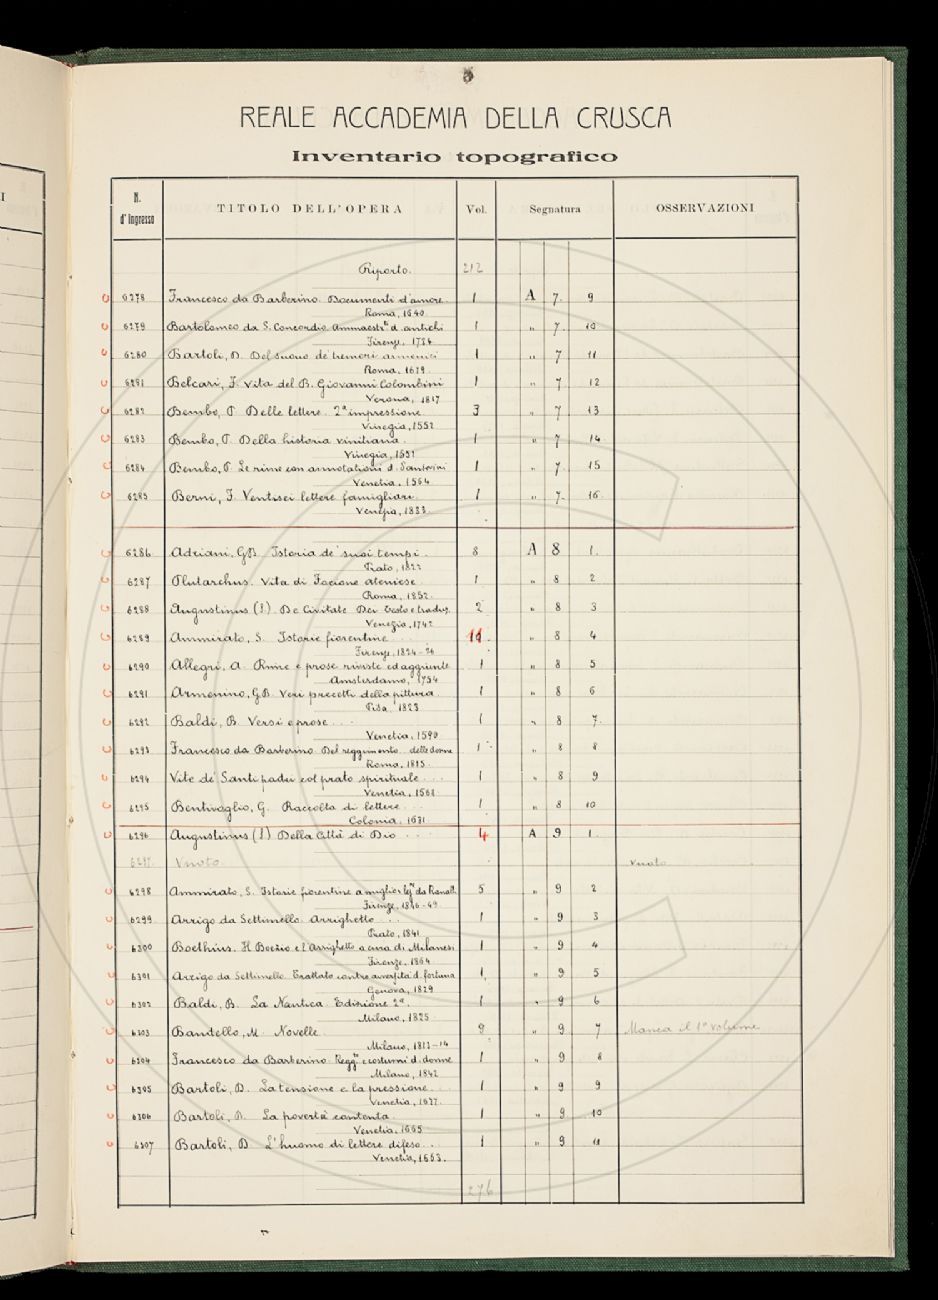 REALE ACCADEMIA DELLA CRUSCA
Inventario topografico
N. d'Ingresso TITOLO DELL'OPERA Vol. Segnatura OSSERVAZIONI
Riporto. 212
6278 Francesco da Barberino. Documenti d'amore 1 A 7. 9
Roma, 1640.
6279 Bartolomeo da S. Concordio. Ammaestr.ti d. antichi 1 " 7. 10
Firenze, 1734
6280 Bartoli, D. Del suono de' tremori armonici 1 " 7 11
Roma, 1679.
6281 Belcari, F. Vita del B. Giovanni Colombini 1 " 7 12
Verona, 1817
6282 Bembo, P. Delle lettere. 2ª impressione 3 " 7 13
Vinegia, 1552
6283 Bembo, P. Della historia vinitiana. 1 " 7 14.
Vinegia, 1551
6284 Bembo, P. Le rime con annotationi d. Sansovini 1 " 7. 15
Venetia, 1564
6285 Berni, F. Ventisei lettere famigliari. 1 " 7. 16.
Venezia, 1833
6286 Adriani, G.B. Istoria de' suoi tempi. 8 A 8 1.
Prato, 1822
6287 Plutarchus. Vita di Focione ateniese. 1 " 8 2
Roma, 1852.
6288 Augustinus (S.) De Civitate Dei testo e traduz. 2 " 8 3
Venezia, 1742
6289 Ammirato, S. Istorie fiorentine . . . 11. " 8 4
Firenze, 1824-26
6290 Allegri, A. Rime e prose riviste ed aggiunte 1 " 8 5
Amsterdamo, 1754
6291 Armenino, G.B. Veri precetti della pittura. 1 " 8 6
Pisa, 1823
6292 Baldi, B. Versi e prose . . . 1 " 8 7.
Venetia, 1590
6293 Francesco da Barberino. Del reggimento . . delle donne 1 " 8 8
Roma, 1815.
6294 Vite de' Santi padri col prato spirituale . . . 1 " 8 9
Venetia, 1568
6295 Bentivoglio, G. Raccolta di lettere . . . 1 " 8 10
Colonia, 1631
6296 Augustinus (S.) Della Città di Dio . . . 4 A 9 1.
6297. Vuoto. vuoto
6298 Ammirato, S. Istorie fiorentine a miglior lez.ne da Ranalli 5 " 9 2
Firenze, 1846-49
6299 Arrigo da Settimello. Arrighetto . . . 1 " 9 3
Prato, 1841
6300 Boethius. Il Boezio e l'Arrighetto a cura di Milanesi 1 " 9 4
Firenze, 1864
6301 Arrigo da Settimello. Trattato contro avversità d. fortuna 1 " 9 5
Genova, 1829
6302 Baldi, B. La Nautica. Edizione 2ª. 1 " 9 6
Milano, 1825
6303 Bandello, M. Novelle 9 " 9 7 Manca il 1º volume
Milano, 1813-14
6304 Francesco da Barberino. Regg.to e costumi d. donne 1 " 9 8
Milano, 1842
6305 Bartoli, D. La tensione e la pressione . . . 1 " 9 9
Venetia, 1677.
6306 Bartoli, D. La povertà contenta. 1 " 9 10
Venetia, 1665
6307 Bartoli, D. L'huomo di lettere difeso . . 1 " 9 11
Venetia, 1663.
276